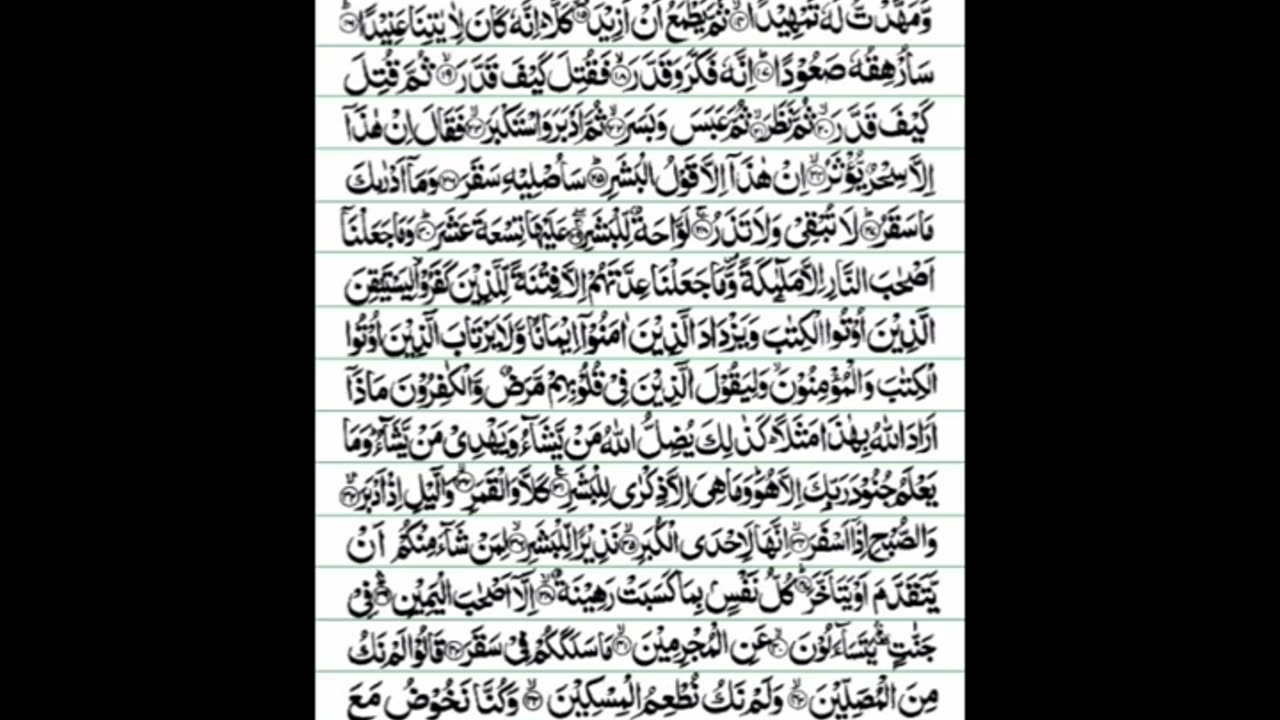 وَّمَهَّدْتُّ لَهٗ تَمْهِيْدًا ۙ‏﴿۱۴﴾ ثُمَّ يَطْمَعُ اَنْ اَزِيْدَ ۙ‏﴿۱۵﴾ كَلَّا ؕ اِنَّهٗ كَانَ لِاٰيٰتِنَا عَنِيْدًا ؕ‏﴿۱۶﴾
سَاُرْهِقُهٗ صَعُوْدًا ؕ‏﴿۱۷﴾ اِنَّهٗ فَكَّرَ وَقَدَّرَ ۙ‏﴿۱۸﴾ فَقُتِلَ كَيْفَ قَدَّرَ ۙ‏﴿۱۹﴾ ثُمَّ قُتِلَ
كَيْفَ قَدَّرَ ۙ‏﴿۲۰﴾ ثُمَّ نَظَرَ ۙ‏﴿۲۱﴾ ثُمَّ عَبَسَ وَبَسَرَ ۙ‏﴿۲۲﴾ ثُمَّ اَدْبَرَ وَاسْتَكْبَرَ ۙ‏﴿۲۳﴾ فَقَالَ اِنْ هٰذَاۤ
اِلَّا سِحْرٌ يُّؤْثَرُ ۙ‏﴿۲۴﴾ اِنْ هٰذَاۤ اِلَّا قَوْلُ الْبَشَرِ ؕ‏﴿۲۵﴾ سَاُصْلِيْهِ سَقَرَ ‏﴿۲۶﴾ وَمَاۤ اَدْرٰىكَ
مَا سَقَرُ ؕ‏﴿۲۷﴾ لَا تُبْقِىْ وَلَا تَذَرُ ۚ‏﴿۲۸﴾ لَوَّاحَةٌ لِّلْبَشَرِ ۖۚ‏﴿۲۹﴾ عَلَيْهَا تِسْعَةَ عَشَرَ ؕ‏﴿۳۰﴾ وَمَا جَعَلْنَاۤ
اَصْحٰبَ النَّارِ اِلَّا مَلٰٓٮِٕكَةً ۪ وَّمَا جَعَلْنَا عِدَّتَهُمْ اِلَّا فِتْنَةً لِّلَّذِيْنَ كَفَرُوْا ۙ لِيَسْتَيْقِنَ
الَّذِيْنَ اُوْتُوا الْكِتٰبَ وَيَزْدَادَ الَّذِيْنَ اٰمَنُوْۤا اِيْمَانًا وَّلَا يَرْتَابَ الَّذِيْنَ اُوْتُوا
الْكِتٰبَ وَالْمُؤْمِنُوْنَ ۙ وَلِيَقُوْلَ الَّذِيْنَ فِىْ قُلُوْبِهِمْ مَّرَضٌ وَّالْكٰفِرُوْنَ مَاذَاۤ
اَرَادَ اللّٰهُ بِهٰذَا مَثَلًا ؕ كَذٰلِكَ يُضِلُّ اللّٰهُ مَنْ يَّشَآءُ وَيَهْدِىْ مَنْ يَّشَآءُ ؕ وَمَا
يَعْلَمُ جُنُوْدَ رَبِّكَ اِلَّا هُوَ ؕ وَمَا هِىَ اِلَّا ذِكْرٰى لِلْبَشَرِ ‏﴿۳۱﴾ كَلَّا وَالْقَمَرِ ۙ‏﴿۳۲﴾ وَالَّيْلِ اِذْ اَدْبَرَ ۙ‏﴿۳۳﴾
وَالصُّبْحِ اِذَاۤ اَسْفَرَ ۙ‏﴿۳۴﴾ اِنَّهَا لَاِحْدَى الْكُبَرِ ۙ‏﴿۳۵﴾ نَذِيْرًا لِّلْبَشَرِ ۙ‏﴿۳۶﴾ لِمَنْ شَآءَ مِنْكُمْ اَنْ
يَّتَقَدَّمَ اَوْ يَتَاَخَّرَ ؕ‏﴿۳۷﴾ كُلُّ نَفْسٍۢ بِمَا كَسَبَتْ رَهِيْنَةٌ ۙ‏﴿۳۸﴾ اِلَّاۤ اَصْحٰبَ الْيَمِيْنِ ۛؕ‏﴿۳۹﴾ فِىْ
جَنّٰتٍ ۛ يَتَسَآءَلُوْنَ ۙ‏﴿۴۰﴾ عَنِ الْمُجْرِمِيْنَ ۙ‏﴿۴۱﴾ مَا سَلَكَكُمْ فِىْ سَقَرَ ‏﴿۴۲﴾ قَالُوْا لَمْ نَكُ
مِنَ الْمُصَلِّيْنَ ۙ‏﴿۴۳﴾ وَلَمْ نَكُ نُطْعِمُ الْمِسْكِيْنَ ۙ‏﴿۴۴﴾ وَكُنَّا نَخُوْضُ مَعَ